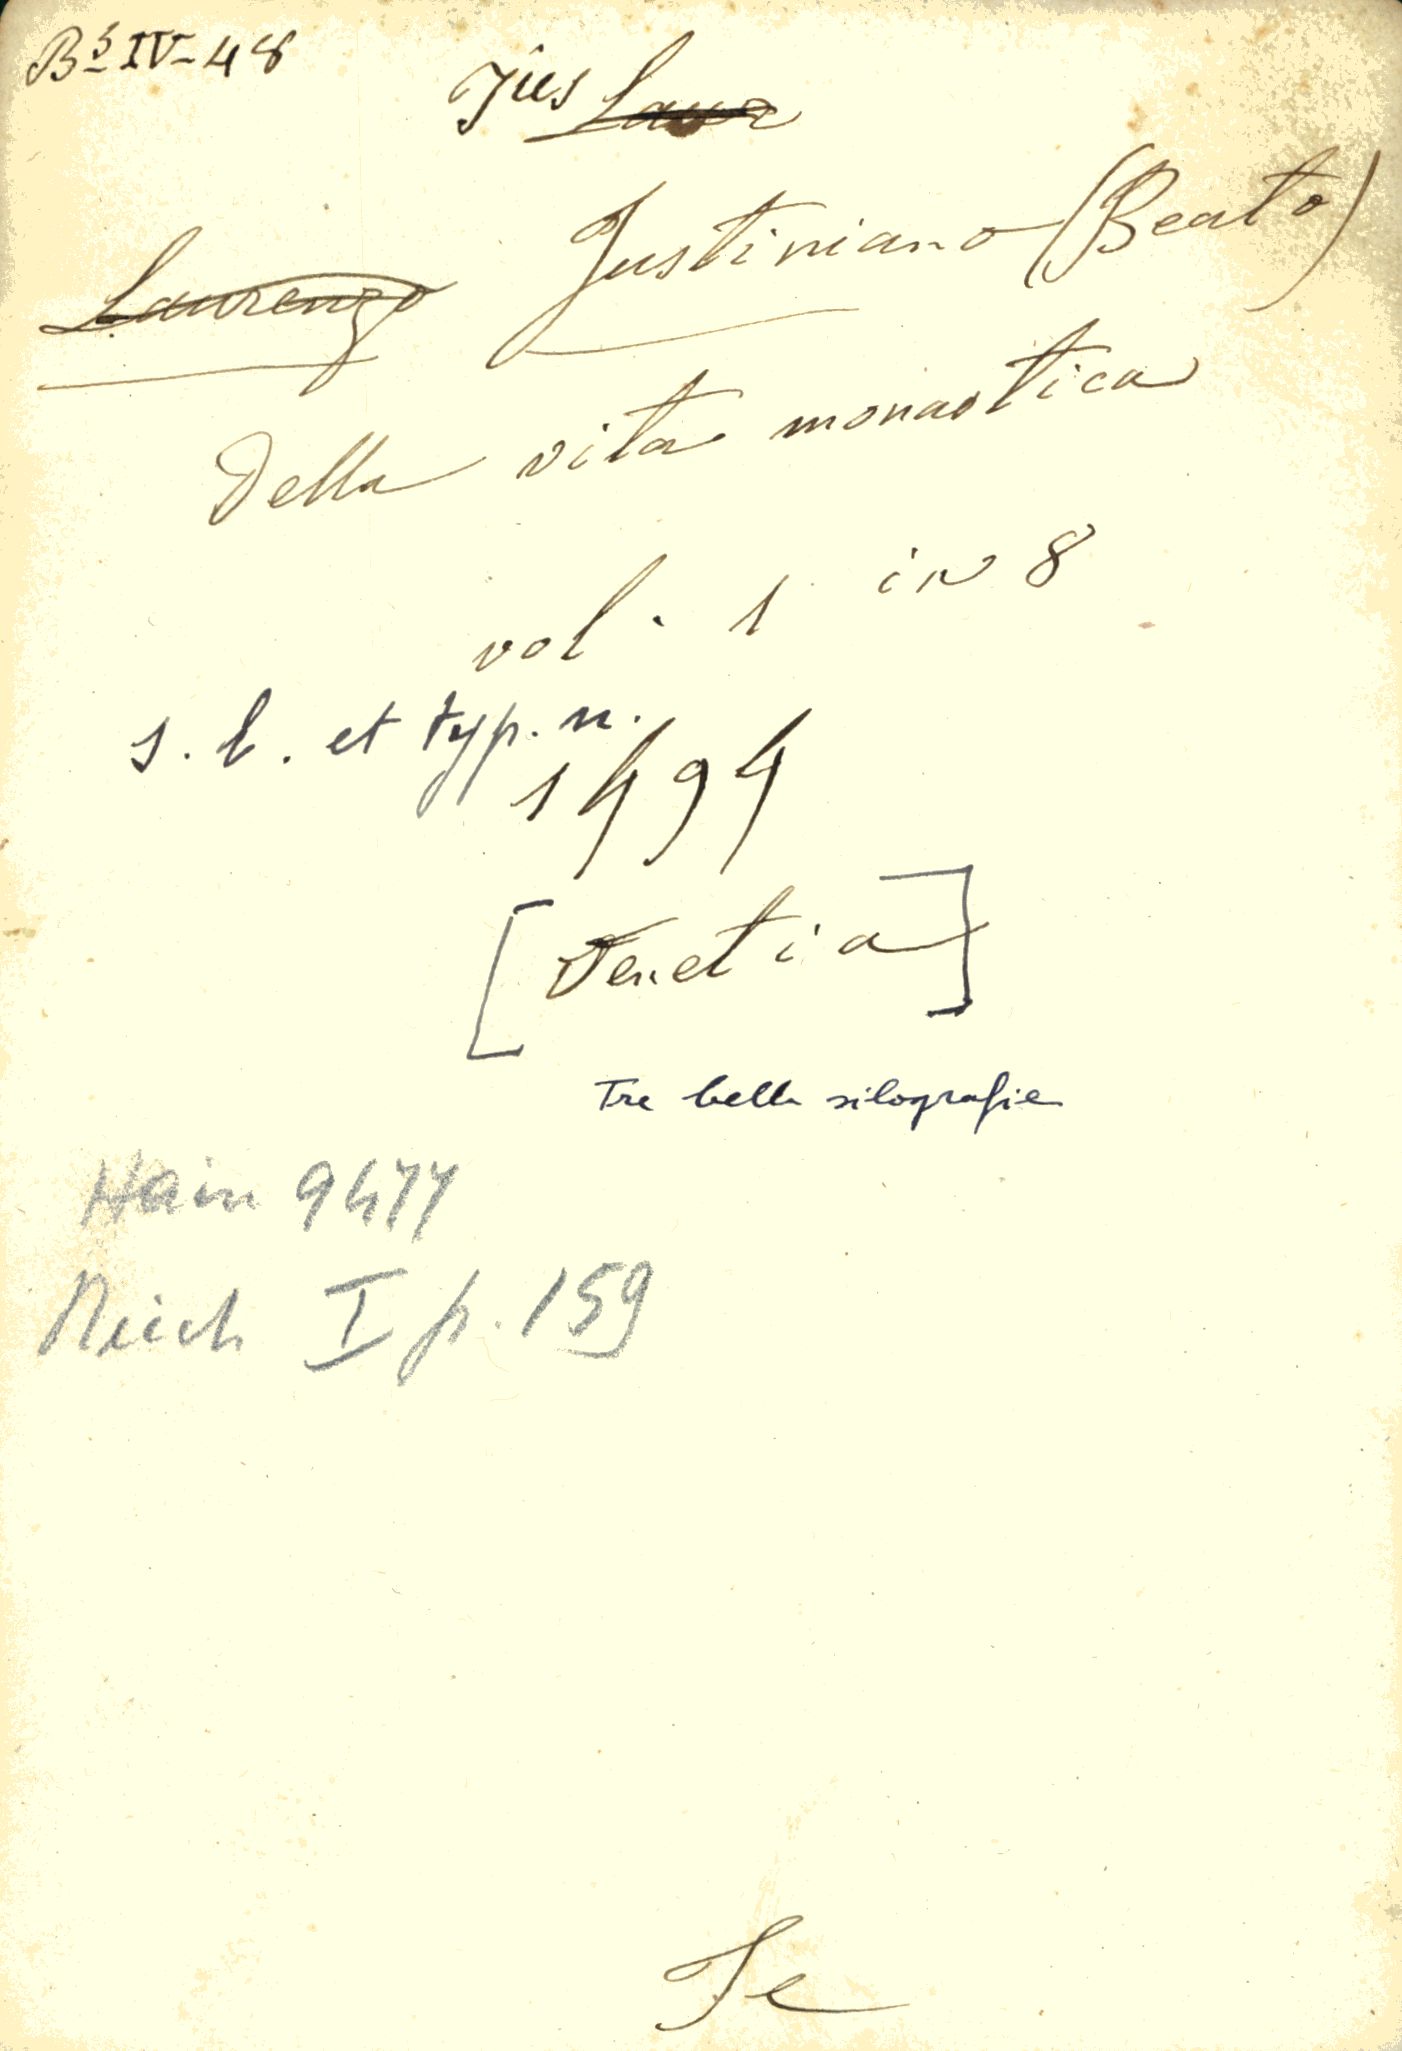 Bˢ IV-48
Jũs Laur
Laurenzo Justiniano (Beato)
Della vita monastica
vol. 1 in 8
s. l. et typ. n.
1494
[Venetia]
Tre belle silografie
Hain 9477
Reich I p. 159
Je